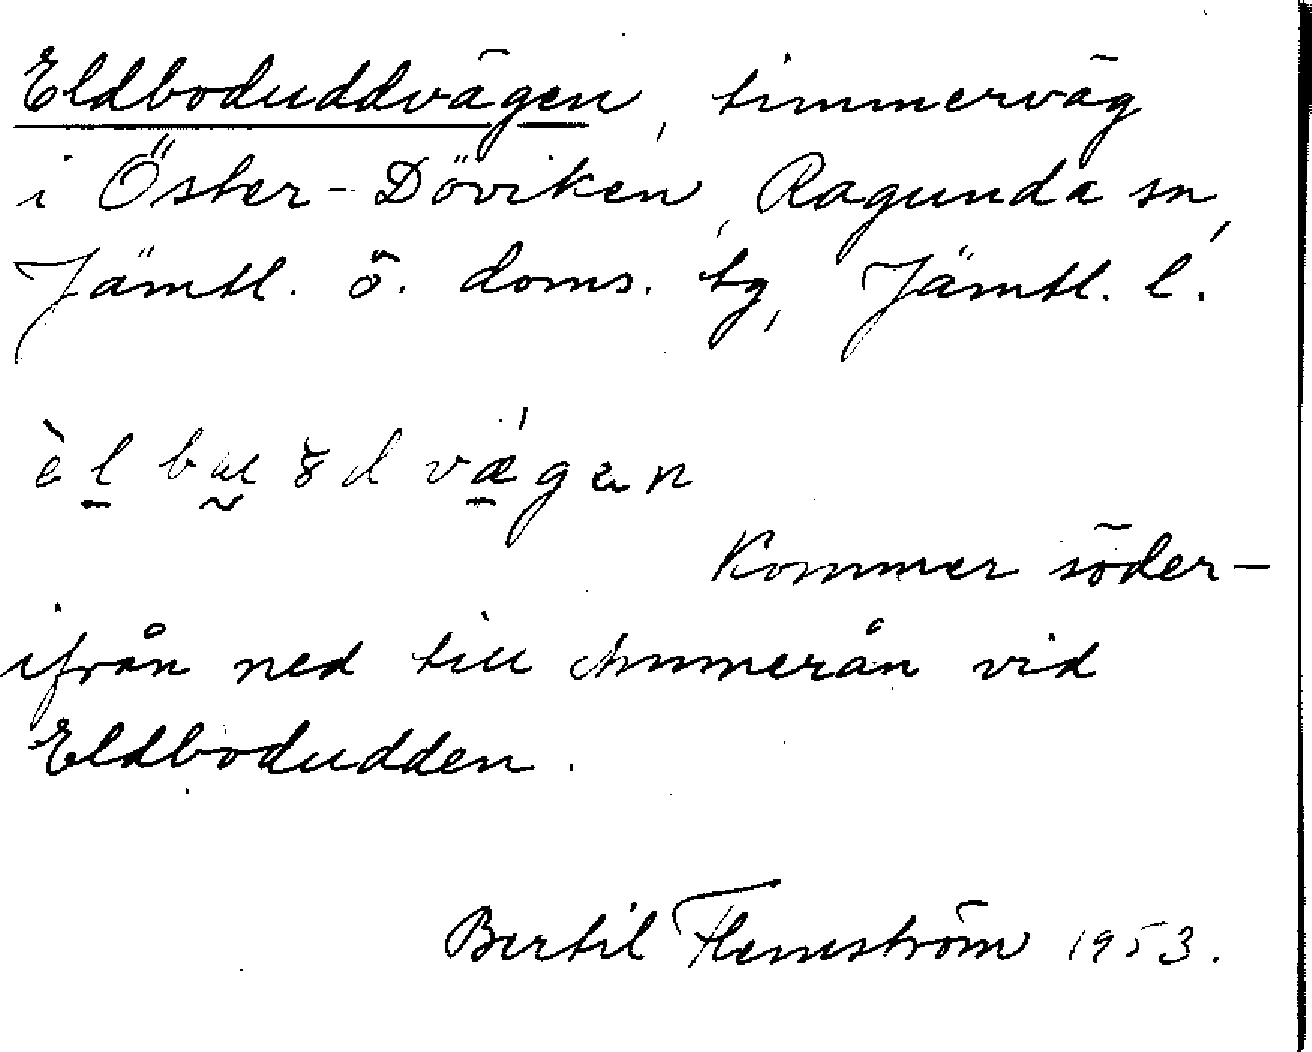 Eldboduddvägen, timmerväg
i Öster-Döviken, Ragunda sn,
Jämtl. ö. doms. tg, Jämtl. l.
Kommer söder-
ifrån ned till Ammerån vid
Eldbodudden.
Bertil Flemström 1953.